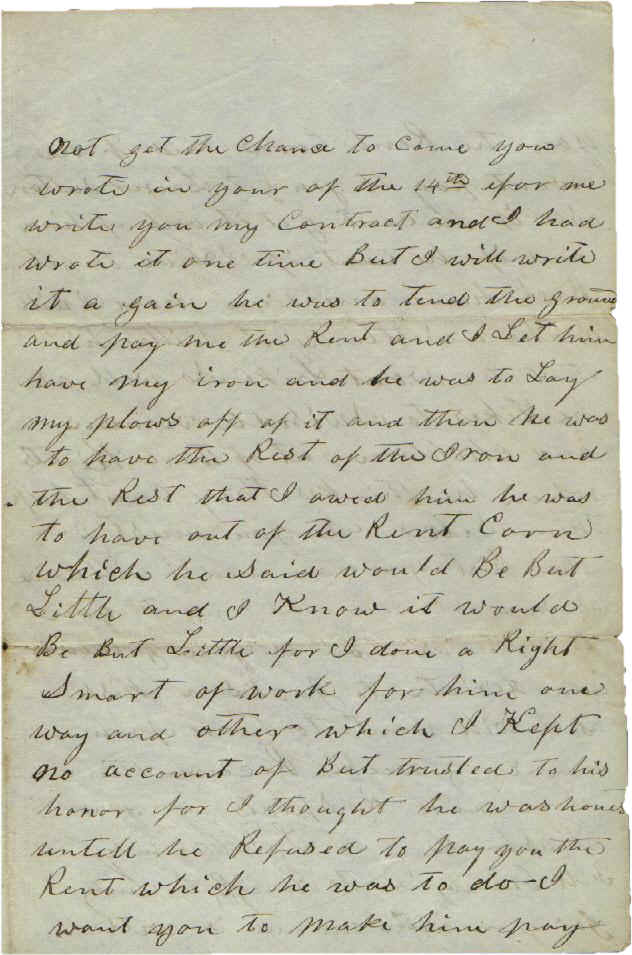 not get the Chance to Come you
wrote in your of the 14th for me
write you my Contract and I had
wrote it one time But I will write
it a gain he was to tend the ground
and pay me the Rent and I Let him
have my iron and he was to Lay
my plows off of it and then he was
to have the Rest of the Iron and
the Rest that I owed him he was
to have out of the Rent Corn
which he said would Be But
Little and I Know it would
Be But Little for I done a Right
Smart of work for him one
way and other which I Kept
no account of But trusted to his
honor for I thought he was hones
untell he Refused to pay you the
Rent which he was to do - I
want you to make him pay